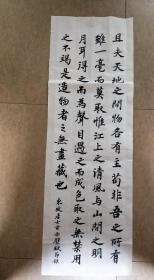 且夫天地之間物各有主苟非吾之所有
雖一毫而莫取惟江上之清風與山間之明
月耳得之而為聲目遇之而成色取之無禁用
之不竭是造物者之無盡藏也
東坡居士前赤壁賦節録